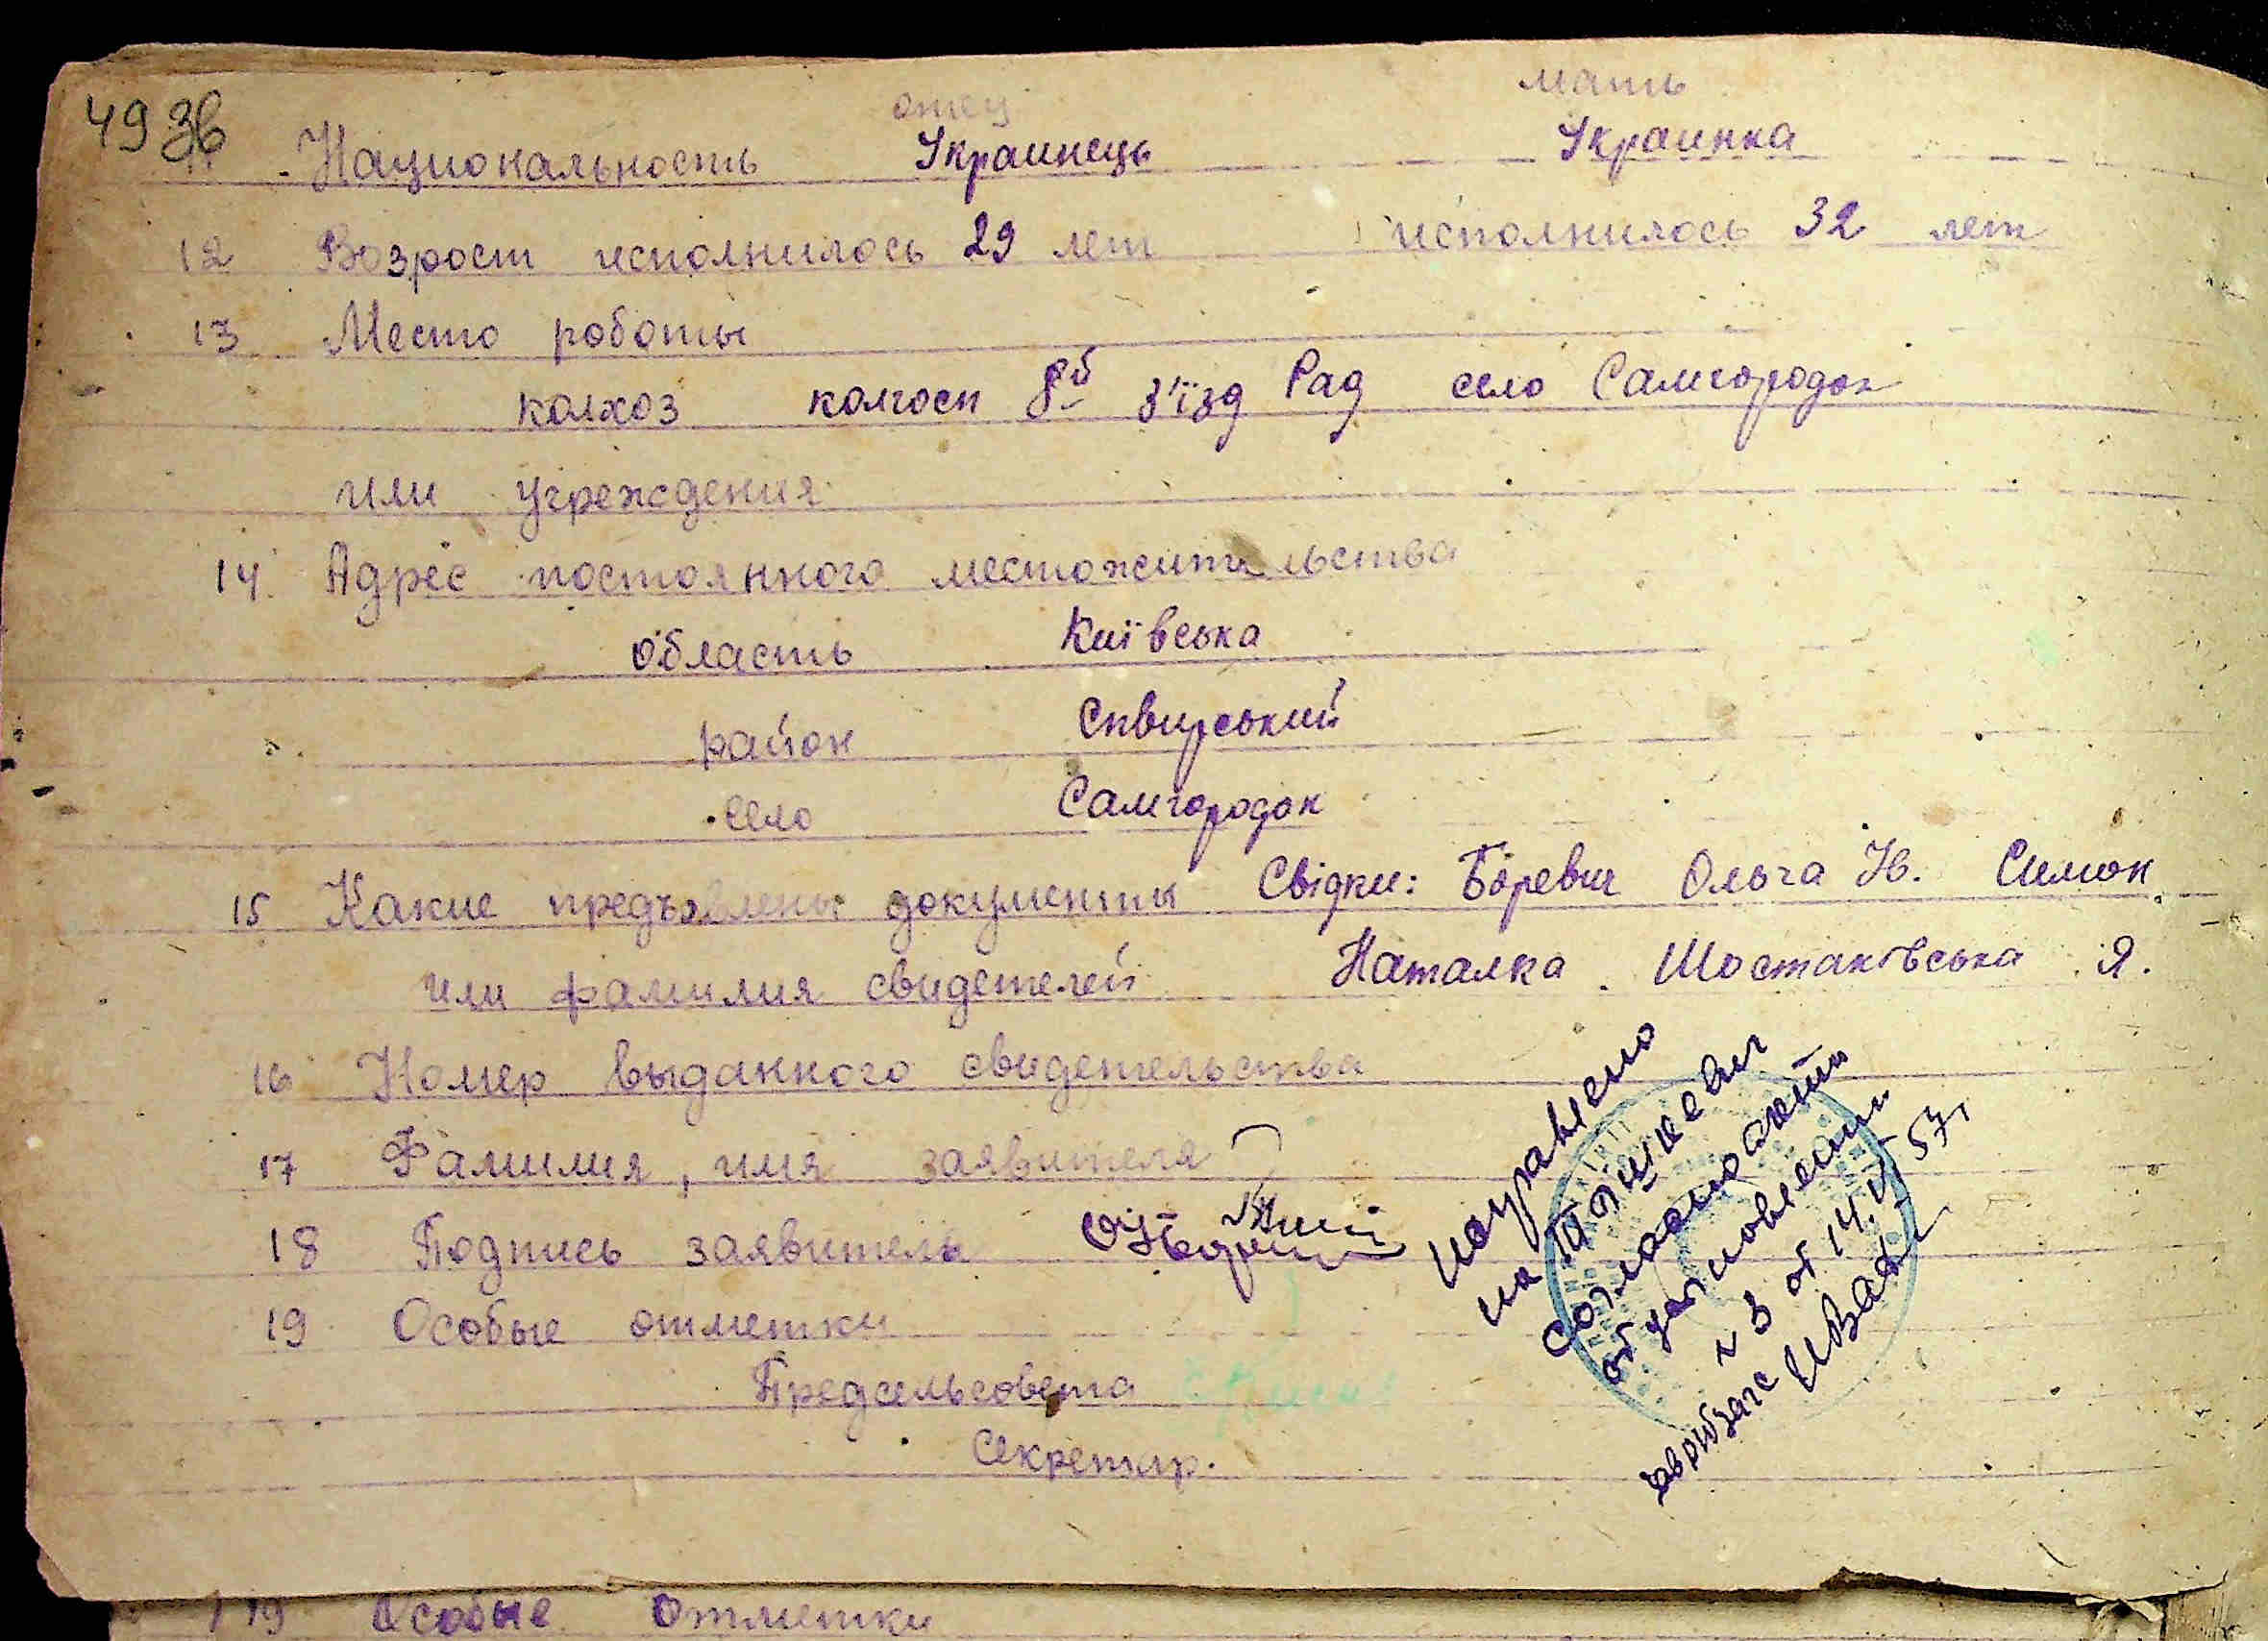 49 зв
отец мать
11. Национальность Украинець Украинка
12 Возрост исполнилось 29 лет исполнилось 32 лет
13 Место роботы
колхоз колгосп 8й з'їзд Рад село Самгородок
или учреждения
14 Адрес постоянного местожительства
область Київська
район Сквирський
село Самгородок
15 Какие предъявлены документы Свідки: Боревич Ольга Н. Симон
или фамилия свидетелей Наталка. Шостаківська Я.
16 Номер выданного свидетельства
17 Фамилия, имя заявителя
18 Подпись заявитель
19 Особые отметки
Предсельсовета
Секретар.
исправлено
на
согласно
от
№ 3 от 14. 53г
19 Особые отметки